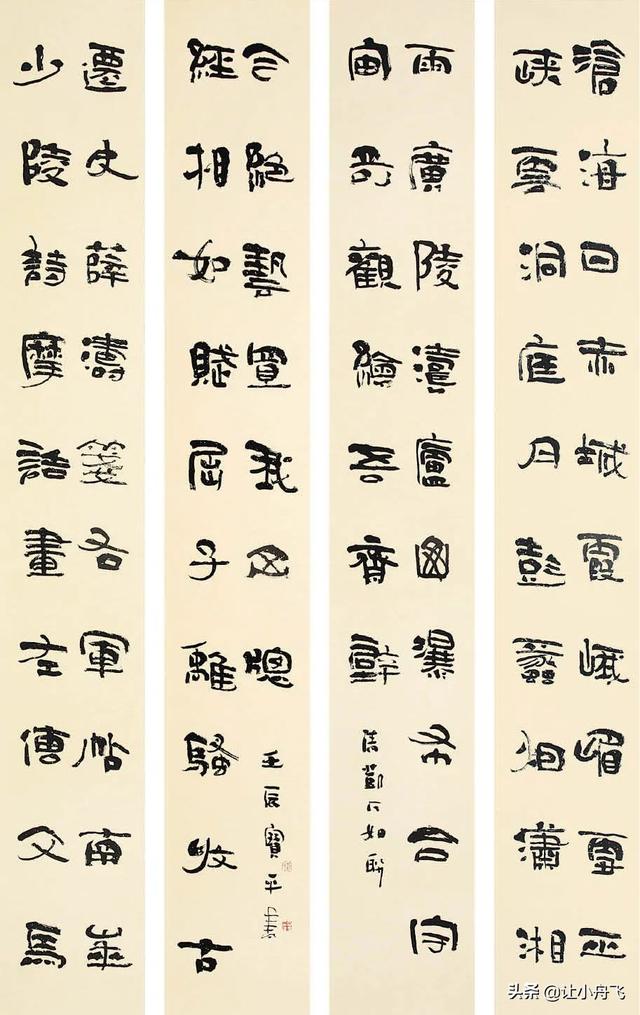 滄海日赤城霞峨嵋雪巫
峽雲洞庭月彭蠡烟瀟湘
雨廣陵濤廬山瀑布合宇
宙奇觀繪吾齊壁
清鄧石如聯
少陵詩摩詰畫左傳文馬
遷史薛濤箋右軍帖南華
經相如賦屈子離騷收古
今絕藝置我山窗
壬辰寶平書
头条 @让小舟飞